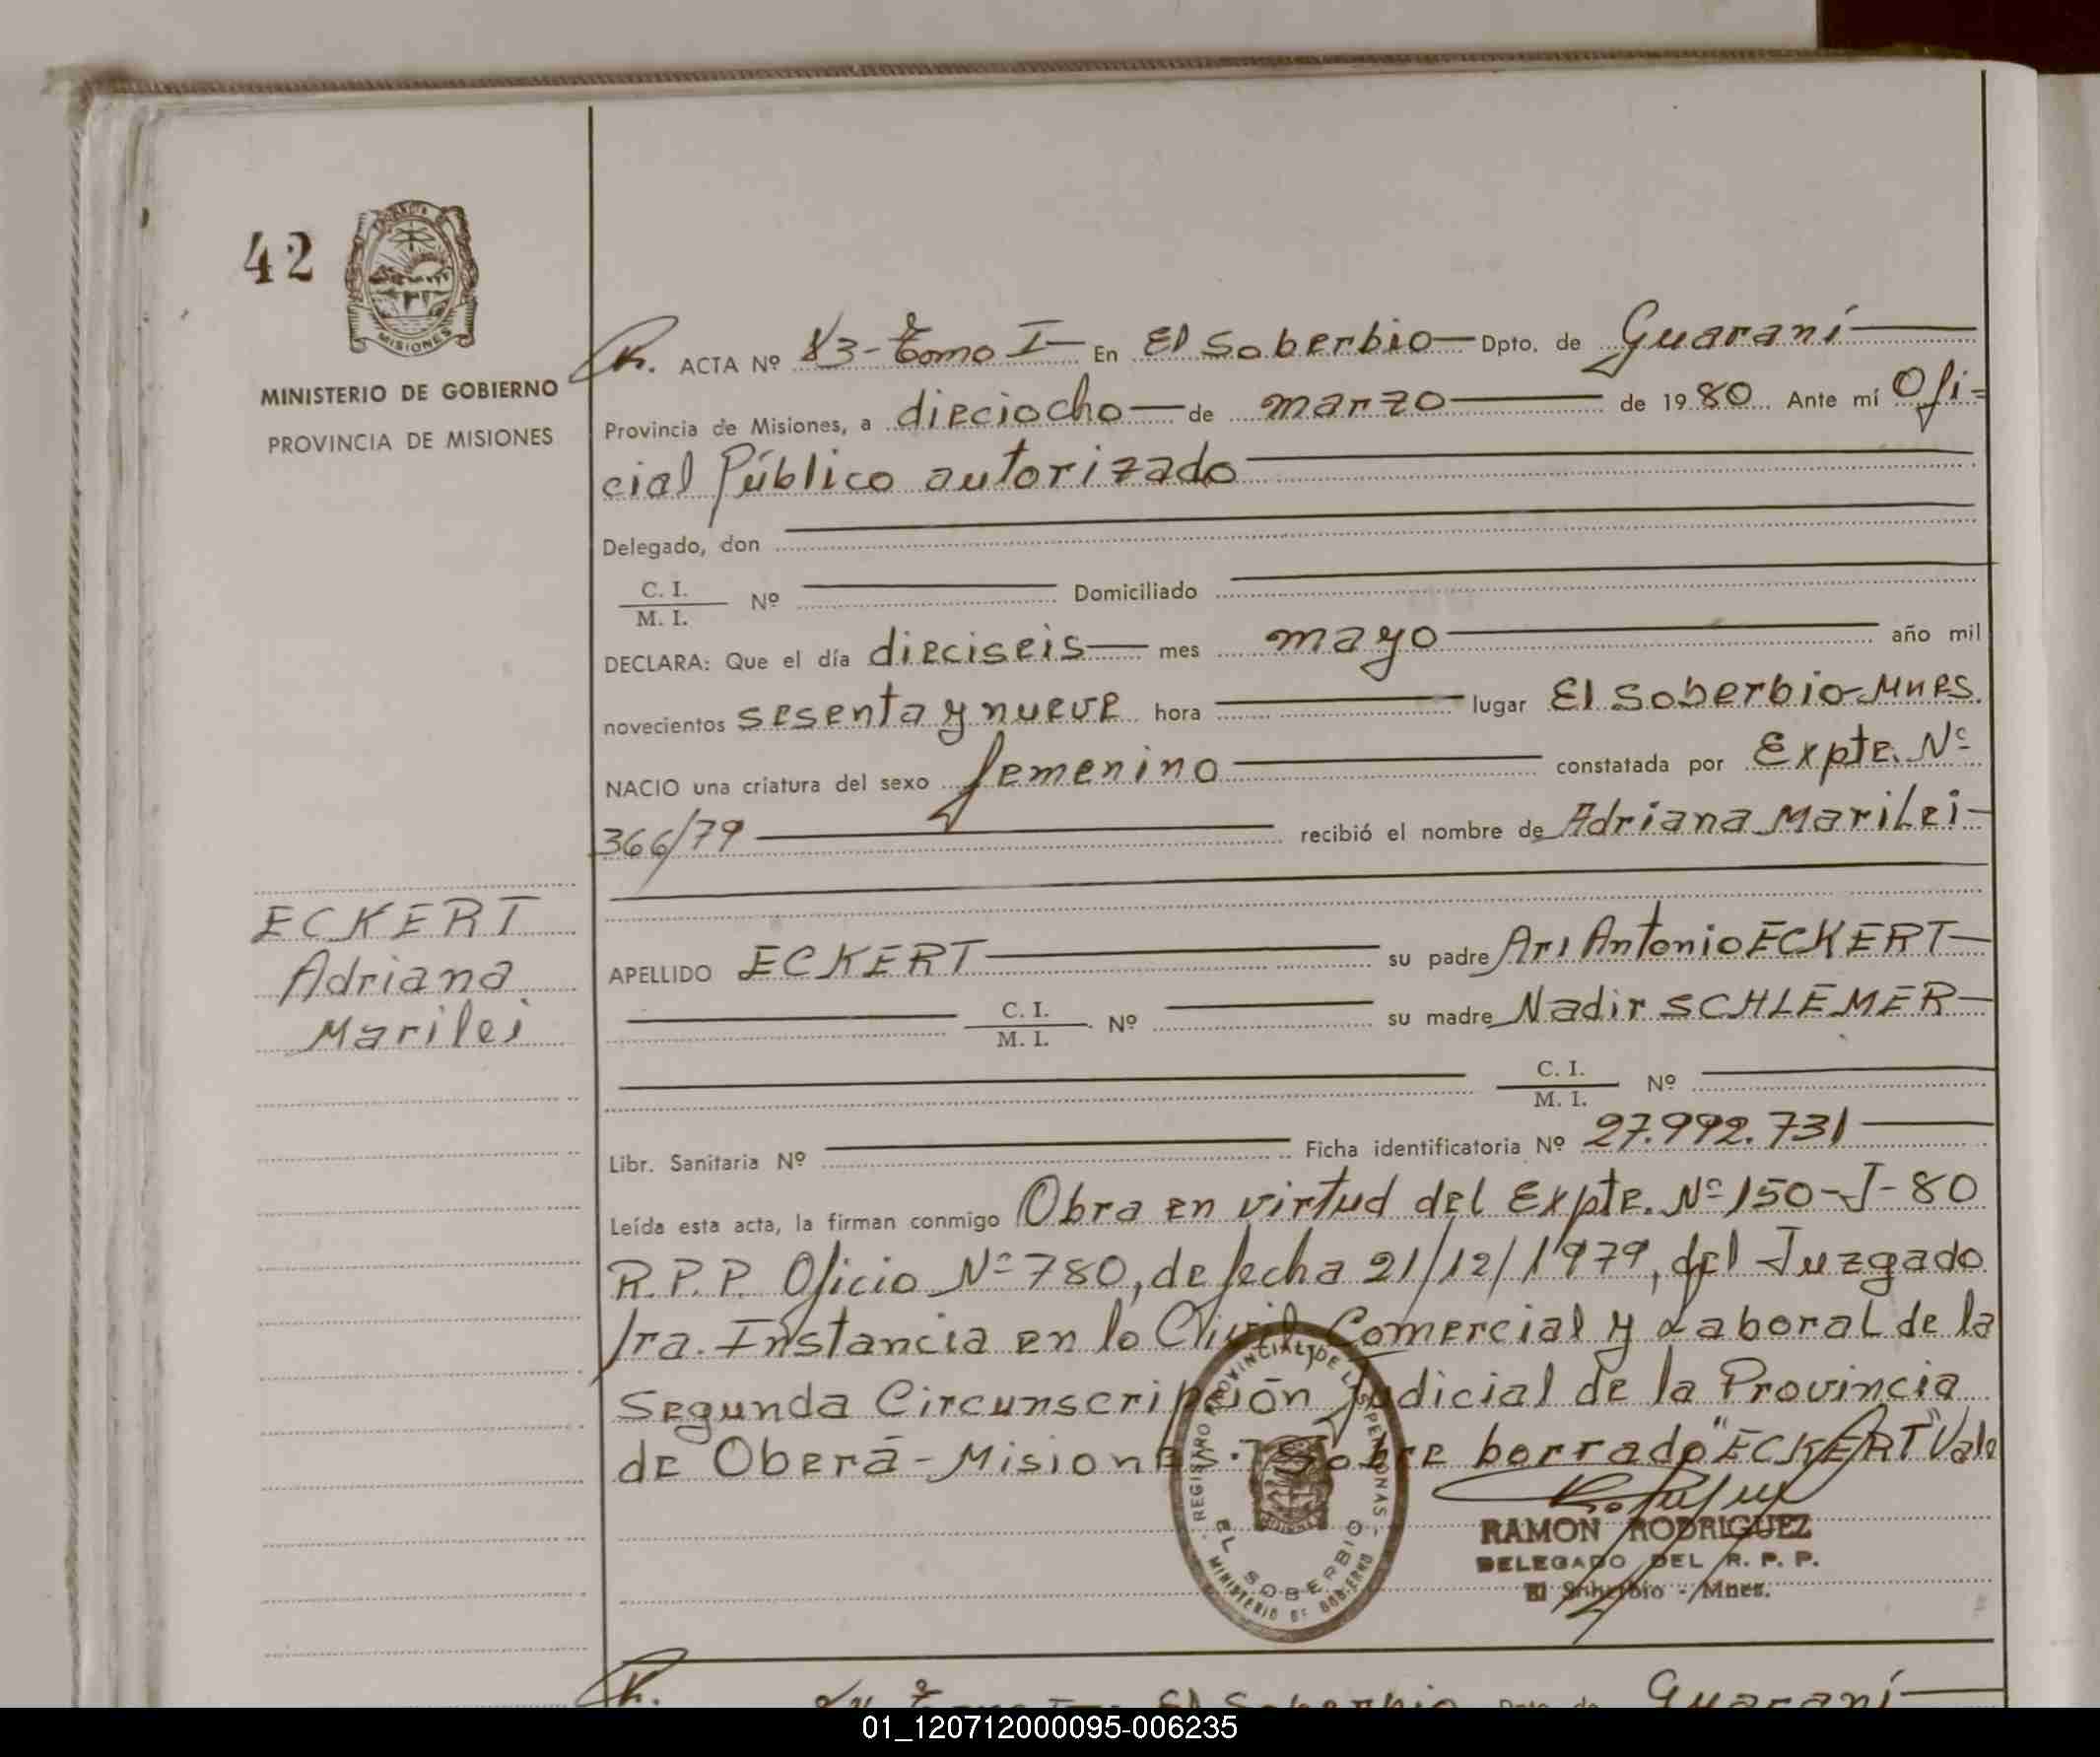 42
MISIONES
MINISTERIO DE GOBIERNO
PROVINCIA DE MISIONES
ACTA Nº 83-Tomo I En El Soberbio Dpto. de Guaraní
Provincia de Misiones, a dieciocho de marzo de 1980 Ante mí Ofi=
cial Público autorizado
Delegado, don
C. I.
M. I. Nº Domiciliado
DECLARA: Que el día dieciseis mes mayo año mil
novecientos sesenta y nueve hora lugar El Soberbio-Mnes.
NACIO una criatura del sexo femenino constatada por Expte. Nº
366/79 recibió el nombre de Adriana Marilei
ECKERT
Adriana
Marilei
APELLIDO ECKERT su padre Ari Antonio ECKERT
C. I.
M. I. Nº su madre Nadir SCHLEMER
C. I.
M. I. Nº
Libr. Sanitaria Nº Ficha identificatoria Nº 27.992.731
Leída esta acta, la firman conmigo Obra en virtud del Expte. Nº 150-J-80
R.P.P. Oficio Nº 780, de fecha 21/12/1979, del Juzgado
1ra. Instancia en lo Civil, Comercial y Laboral de la
Segunda Circunscripción Judicial de la Provincia
de Oberá-Misiones. Sobre borrado "ECKERT" Vale
REGISTRO PROVINCIAL DE LAS PERSONAS
EL SOBERBIO
MINISTERIO DE GOBIERNO
RAMON RODRIGUEZ
DELEGADO DEL R. P. P.
El Soberbio - Mnes.
Tomo I El Soberbio Dpto. de Guaraní
01_120712000095-006235